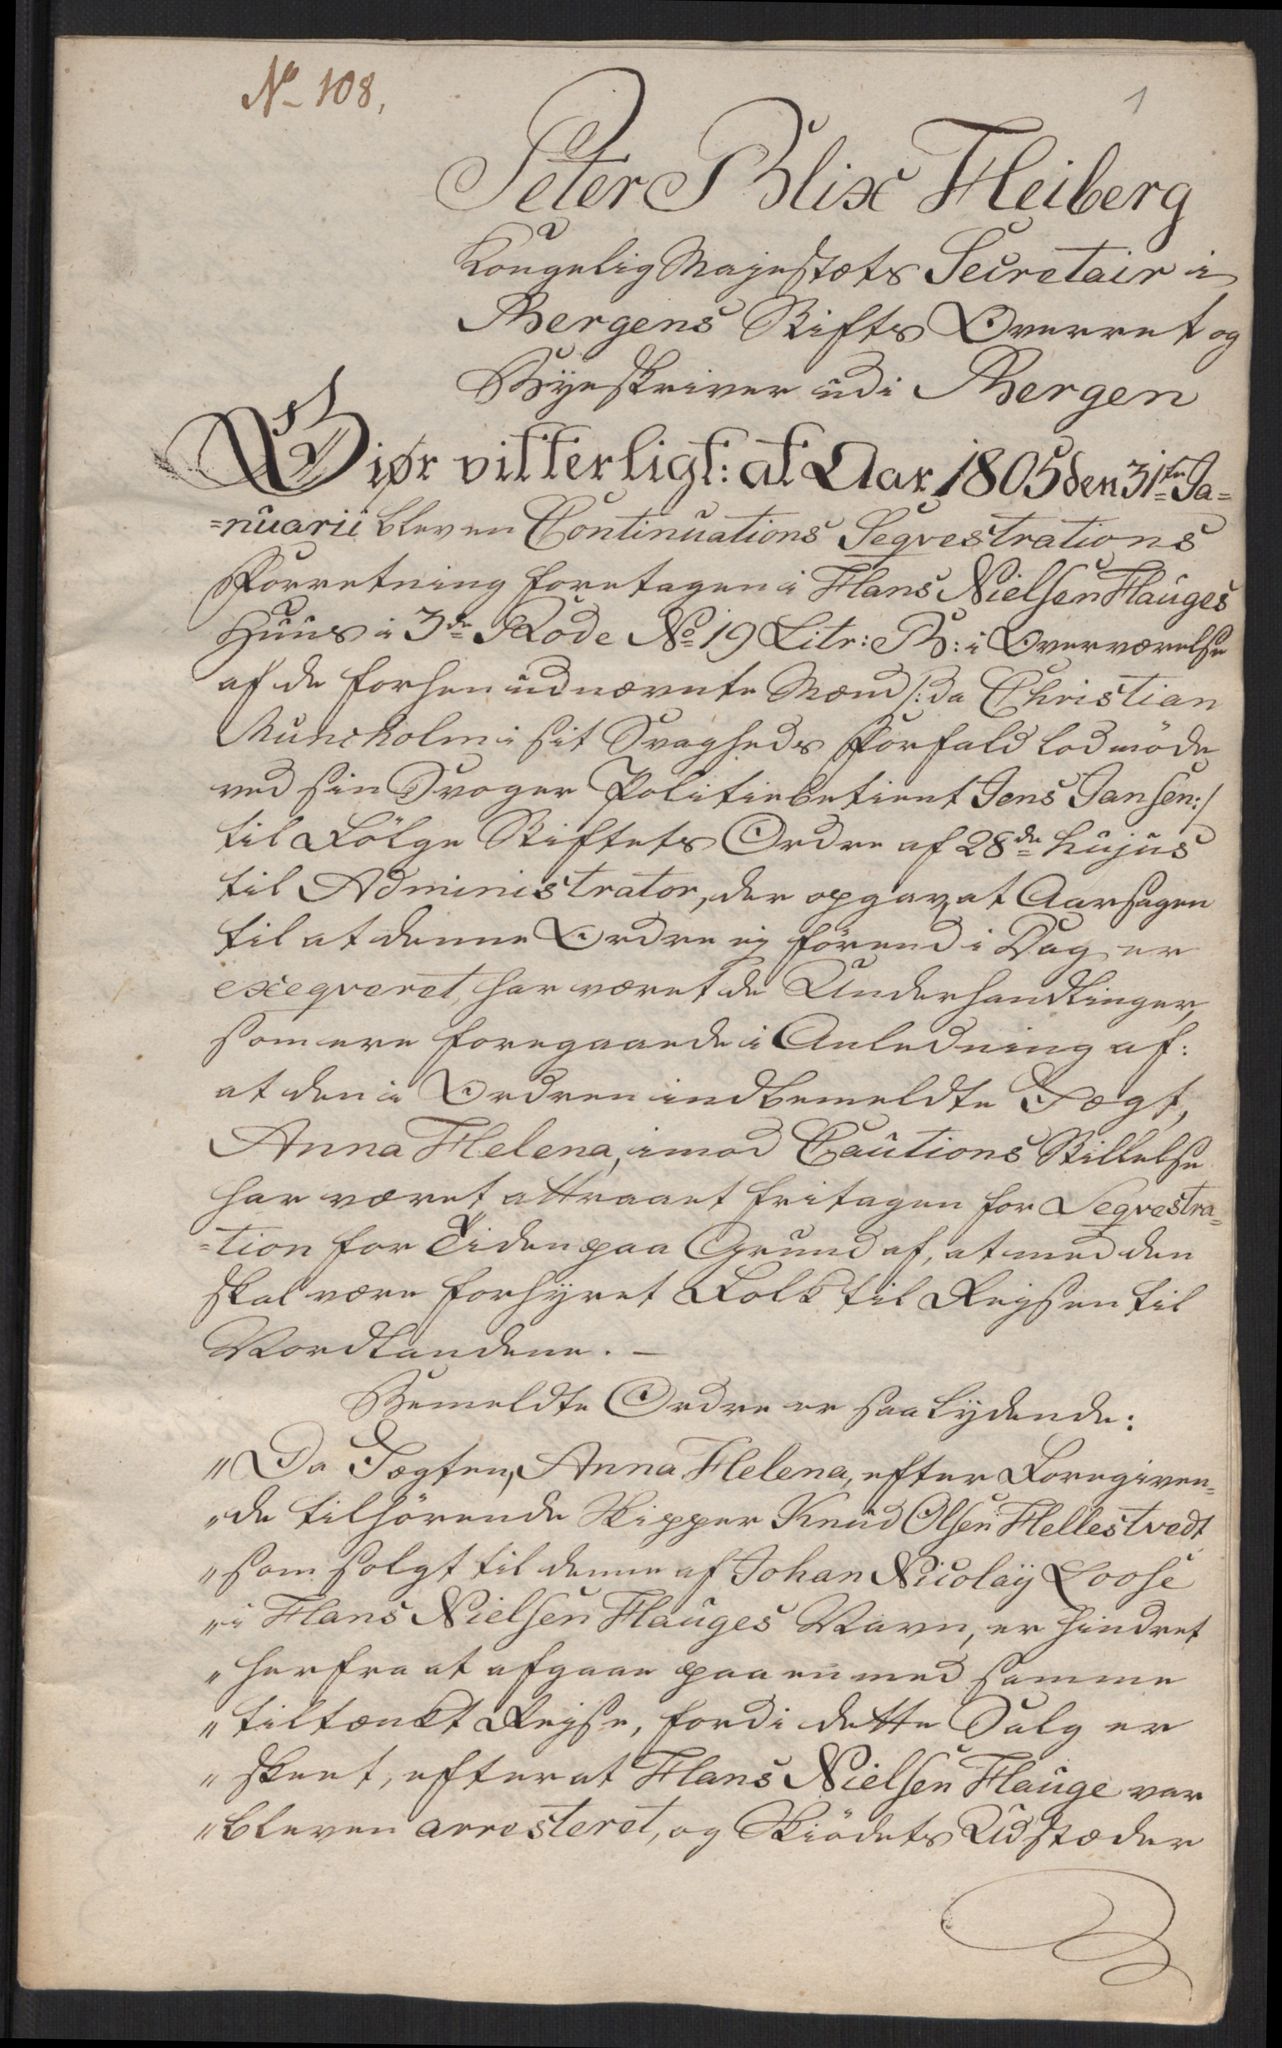 No 108,
1
Peter Blix Heiberg
Kongelig Majestæts Secretair i
Bergens Stifts Overret og
Byeskriver udi Bergen
Giør vitterligt: at Aar 1805 den 31te Ja=
=nuarii bleven Continuations Seqvestrations
Forretning foretagen i Hans Nielsen Hauges
Huus i 3de Rode No 19 Litr: B: i Overværelse
af de forhen udnævnte Mænd /: da Christian
Muncholm i sit Svagheds Forfald lod møde
ved sin Svoger Politiebetient Jens Jansen :/
til Følge Stiftets Ordre af 28de hujus
til Administrator, der opgav, at Aarsagen
til at denne Ordre ej förend i Dag er
exeqveret, har været de Underhandlinger,
som ere foregaaede i Anledning af:
at den i Ordren indbemeldte Jægt,
Anna Helena, imod Cautions Stillelse
har været attraaet fritagen for Seqvestra=
=tion for Tiden paa Grund af, at med den
skal være forhyret Folk til Rejsen til
Nordlandene. —
Bemeldte Ordre er saa lydende:
" Da Jægten, Anna Helena, efter Foregiven=
" de tilhörende Skipper Knud Olsen Hellestvedt
" som solgt til denne af Johan Nicolaÿ Loose
" i Hans Nielsen Hauges Navn, er hindret
" herfra at afgaae paa en med samme
" tiltænkt Rejse, fordi dette Salg er
" skeet, efterat Hans Nielsen Hauge var
" bleven arresteret, og Skiödets Udstæder